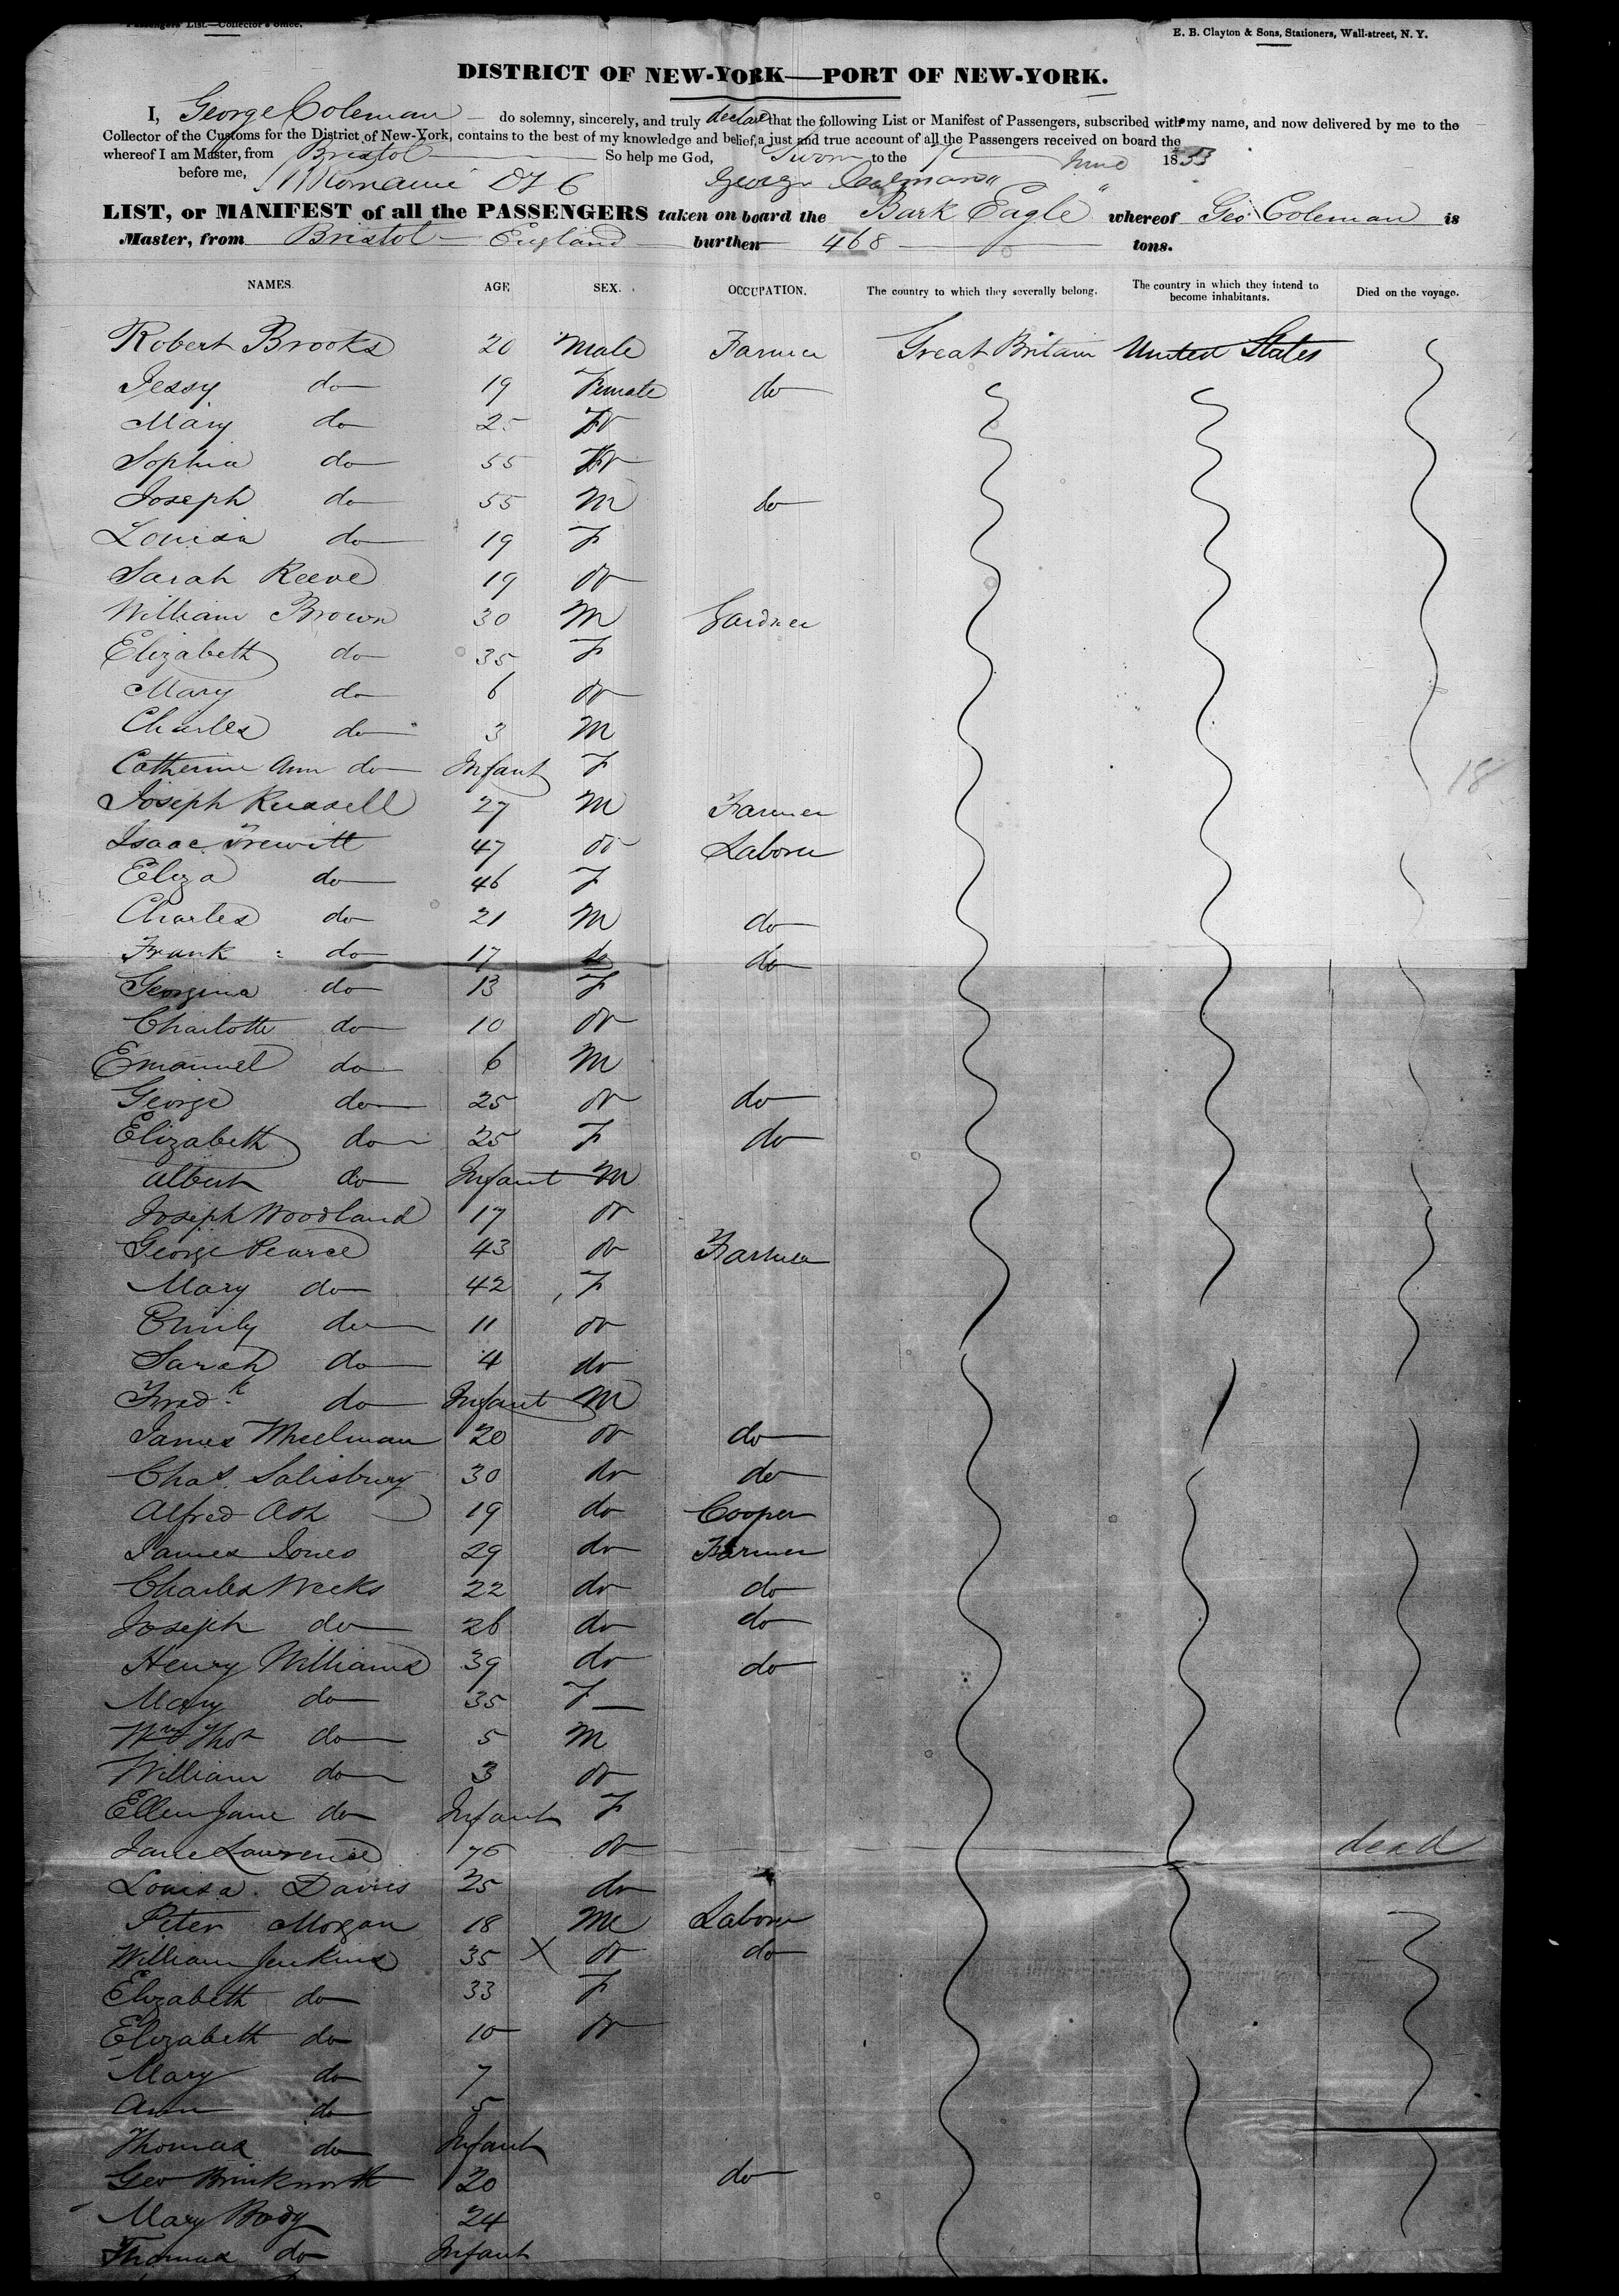 Passengers' List.—Collector's Office.
E. B. Clayton & Sons, Stationers, Wall-street, N. Y.
DISTRICT OF NEW-YORK—PORT OF NEW-YORK.
I, George Coleman do solemny, sincerely, and truly declare that the following List or Manifest of Passengers, subscribed with my name, and now delivered by me to the
Collector of the Customs for the District of New-York, contains to the best of my knowledge and belief, a just and true account of all the Passengers received on board the
whereof I am Master, from Bristol So help me God, Sworn to the June 1853
before me, George Coleman
LIST, or MANIFEST of all the PASSENGERS taken on board the Bark "Eagle" whereof Geo Coleman is
Master, from Bristol England burthen 468 tons.
NAMES. AGE SEX. OCCUPATION. The country to which they severally belong. The country in which they intend to become inhabitants. Died on the voyage.
Robert Brooks 20 Male Farmer Great Britain United States
Jessy do 19 Female do
Mary do 25 do
Sophia do 55 do
Joseph do 55 M do
Louisa do 19 F
Sarah Reeve 19 do
William Brown 30 M Gardner
Elizabeth do 35 F
Mary do 6 do
Charles do 3 M
Catherine Ann do Infant F
18
Joseph Russell 27 M Farmer
Isaac Trewitt 47 do Laborer
Eliza do 46 F
Charles do 21 M do
Frank do 17 do do
Georgina do 13 F
Charlotte do 10 do
Emanuel do 6 M
George do 25 do do
Elizabeth do 25 F do
Albert do Infant M
Joseph Woodland 17 do
George Pearce 43 do Farmer
Mary do 42 F
Emily do 11 do
Sarah do 4 do
Fredk do Infant M
James Wheelman 20 do do
Chas. Salisbury 30 do do
Alfred Ash 19 do Cooper
James Jones 29 do Farmer
Charles Weeks 22 do do
Joseph do 26 do do
Henry Williams 39 do do
Mary do 35 F
Wm Thos do 5 M
William do 3 do
Ellen Jane do Infant F
Jane Lawrence 75 do dead
Louisa Davies 25 do
Peter Morgan 18 M Laborer
William Jenkins 35 X do do
Elizabeth do 33 F
Elizabeth do 10 do
Mary do 7
Ann do 5
Thomas do Infant
Geo Brinkworth 20 do
Mary Body 24
Thomas do Infant